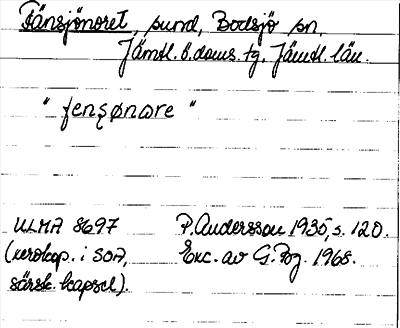 Fänsjönoret, sund, Bodsjö sn,
Jämtl. ö. doms. tg, Jämtl. län.
"fensønare"
ULMA 8697 P. Andersson 1935, s. 120.
(xerokop. i SOA, Exc. av G. Pzg. 1968.
särsk. kapsel).